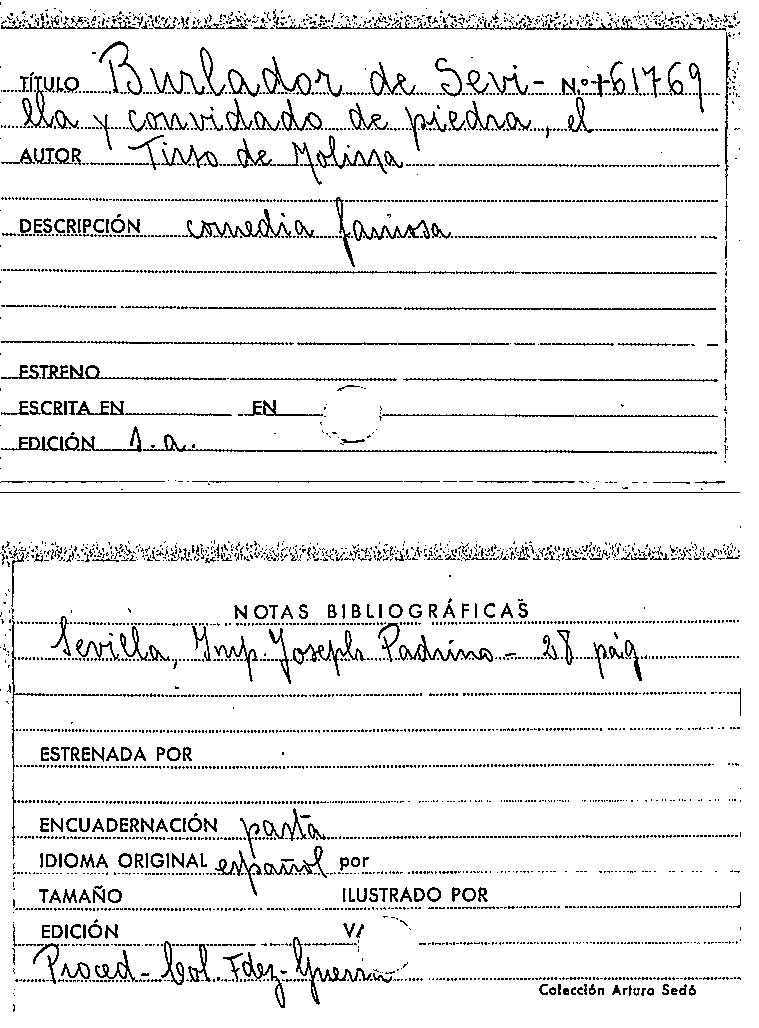 TÍTULO Burlador de Sevi- N.º +61769
lla y convidado de piedra, el
AUTOR Tirso de Molina
DESCRIPCIÓN comedia famosa
ESTRENO
ESCRITA EN EN
EDICIÓN s.a.
NOTAS BIBLIOGRÁFICAS
Sevilla, Imp. Joseph Padrino - 28 pág
ESTRENADA POR
ENCUADERNACIÓN pasta
IDIOMA ORIGINAL español por
TAMAÑO ILUSTRADO POR
EDICIÓN
Proced - Col. Fdez-Guerra
Colección Arturo Sedó